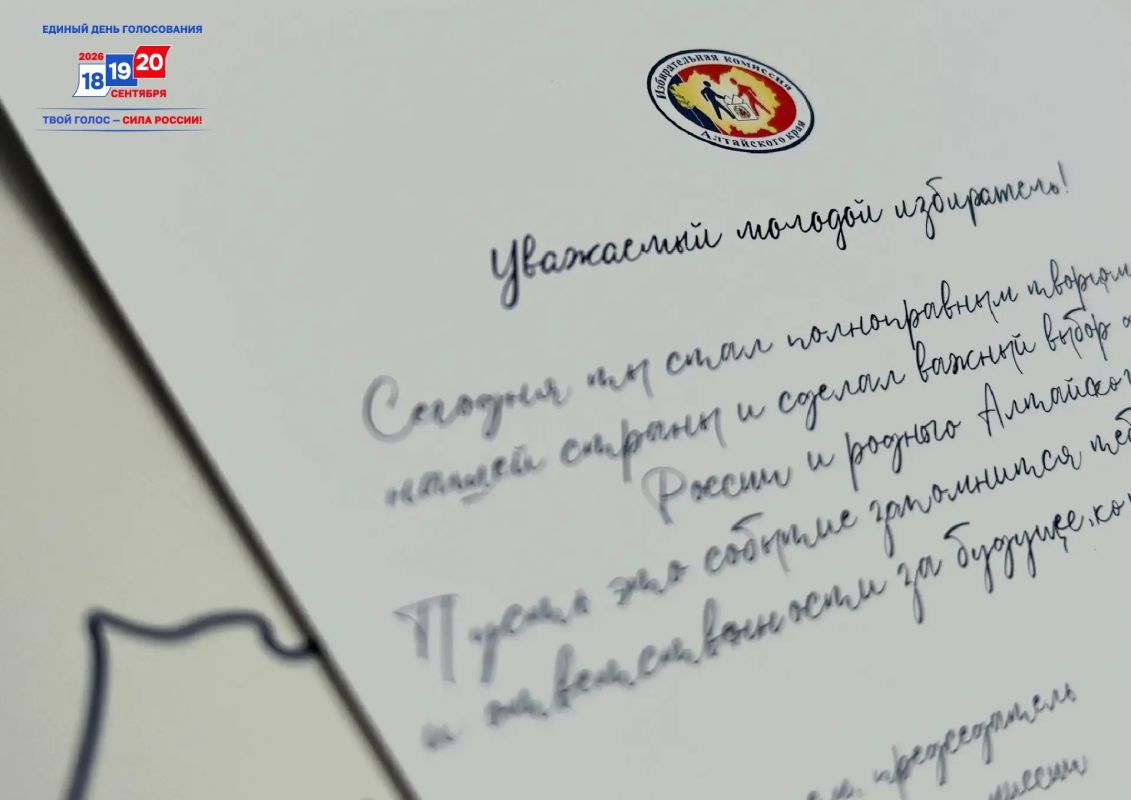 ЕДИНЫЙ ДЕНЬ ГОЛОСОВАНИЯ
2026
18 19 20
СЕНТЯБРЯ
ТВОЙ ГОЛОС – СИЛА РОССИИ!
Избирательная комиссия
Алтайского края
Уважаемый молодой избиратель!
Сегодня ты стал полноправным творцом
нашей страны и сделал важный выбор
России и родного Алтайского
Пусть это событие запомнится
и ответственности за будущее,
председатель